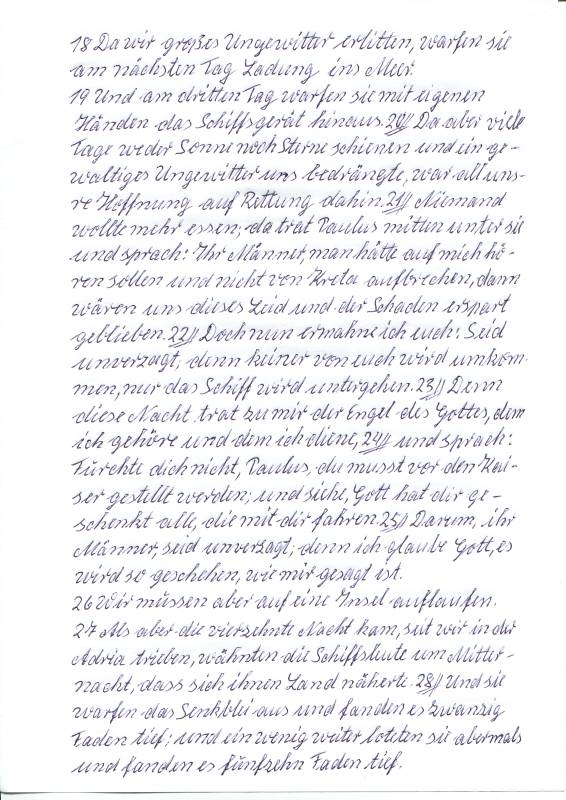 18 Da wir großes Ungewitter erlitten, warfen sie
am nächsten Tag Ladung ins Meer.
19 Und am dritten Tag warfen sie mit eigenen
Händen das Schiffsgerät hinaus. 20// Da aber viele
Tage weder Sonne noch Sterne schienen und ein ge-
waltiges Ungewitter uns bedrängte, war all uns-
re Hoffnung auf Rettung dahin. 21// Niemand
wollte mehr essen; da trat Paulus mitten unter sie
und sprach: Ihr Männer, man hätte auf mich hö-
ren sollen und nicht von Kreta aufbrechen, dann
wären uns dieses Leid und der Schaden erspart
geblieben. 22// Doch nun ermahne ich euch: Seid
unverzagt; denn keiner von euch wird umkom-
men, nur das Schiff wird untergehen. 23// Denn
diese Nacht trat zu mir der Engel des Gottes, dem
ich gehöre und dem ich diene, 24// und sprach:
Fürchte dich nicht, Paulus, du musst vor den Kai-
ser gestellt werden; und siehe, Gott hat dir ge-
schenkt alle, die mit dir fahren. 25// Darum, ihr
Männer, seid unverzagt; denn ich glaube Gott, es
wird so geschehen, wie mir gesagt ist.
26 Wir müssen aber auf eine Insel auflaufen.
27 Als aber die vierzehnte Nacht kam, seit wir in der
Adria trieben, wähnten die Schiffsleute um Mitter-
nacht, dass sich ihnen Land näherte. 28// Und sie
warfen das Senkblei aus und fanden es zwanzig
Faden tief; und ein wenig weiter loteten sie abermals
und fanden es fünfzehn Faden tief.